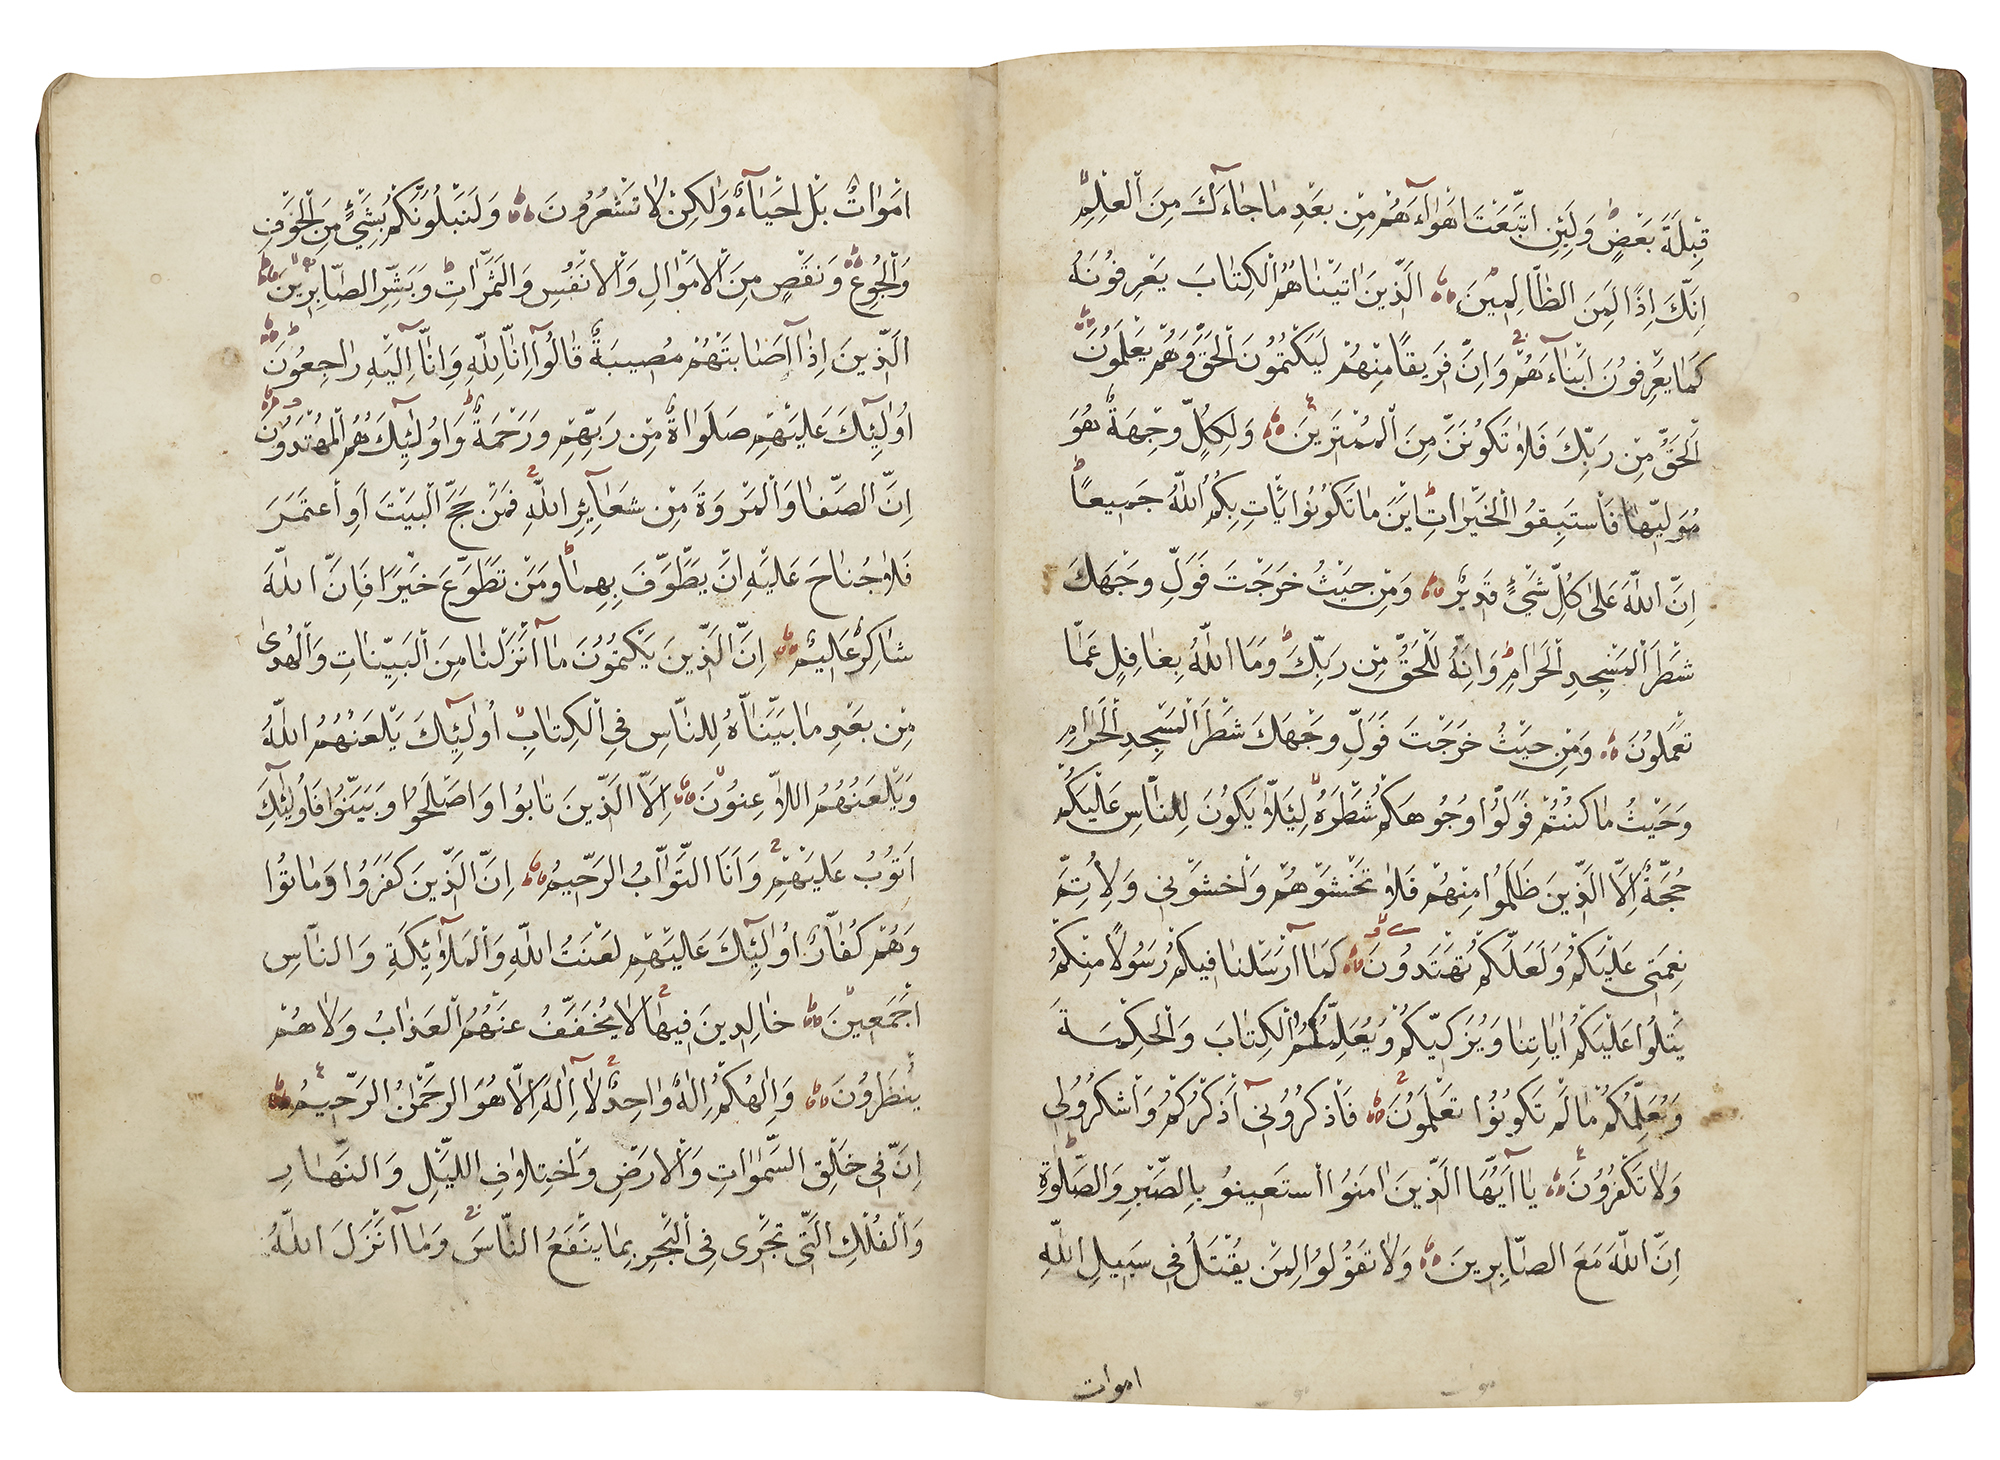 قِبْلَةَ بَعْضٍ وَلَئِنِ اتَّبَعْتَ اَهْوَاءَهُمْ مِنْ بَعْدِ مَا جَاءَكَ مِنَ الْعِلْمِ
اِنَّكَ اِذًا لَمِنَ الظَّالِمِينَ الَّذِينَ اٰتَيْنَاهُمُ الْكِتَابَ يَعْرِفُونَهُ
كَمَا يَعْرِفُونَ اَبْنَاءَهُمْ وَاِنَّ فَرِيقًا مِنْهُمْ لَيَكْتُمُونَ الْحَقَّ وَهُمْ يَعْلَمُونَ
اَلْحَقُّ مِنْ رَبِّكَ فَلَا تَكُونَنَّ مِنَ الْمُمْتَرِينَ وَلِكُلٍّ وِجْهَةٌ هُوَ
مُوَلِّيهَا فَاسْتَبِقُوا الْخَيْرَاتِ اَيْنَ مَا تَكُونُوا يَأْتِ بِكُمُ اللّٰهُ جَمِيعًا
اِنَّ اللّٰهَ عَلٰى كُلِّ شَيْءٍ قَدِيرٌ وَمِنْ حَيْثُ خَرَجْتَ فَوَلِّ وَجْهَكَ
شَطْرَ الْمَسْجِدِ الْحَرَامِ وَاِنَّهُ لَلْحَقُّ مِنْ رَبِّكَ وَمَا اللّٰهُ بِغَافِلٍ عَمَّا
تَعْمَلُونَ وَمِنْ حَيْثُ خَرَجْتَ فَوَلِّ وَجْهَكَ شَطْرَ الْمَسْجِدِ الْحَرَامِ
وَحَيْثُ مَا كُنْتُمْ فَوَلُّوا وُجُوهَكُمْ شَطْرَهُ لِئَلَّا يَكُونَ لِلنَّاسِ عَلَيْكُمْ
حُجَّةٌ اِلَّا الَّذِينَ ظَلَمُوا مِنْهُمْ فَلَا تَخْشَوْهُمْ وَاخْشَوْنِي وَلِاُتِمَّ
نِعْمَتِي عَلَيْكُمْ وَلَعَلَّكُمْ تَهْتَدُونَ كَمَا اَرْسَلْنَا فِيكُمْ رَسُولًا مِنْكُمْ
يَتْلُوا عَلَيْكُمْ اٰيَاتِنَا وَيُزَكِّيكُمْ وَيُعَلِّمُكُمُ الْكِتَابَ وَالْحِكْمَةَ
وَيُعَلِّمُكُمْ مَا لَمْ تَكُونُوا تَعْلَمُونَ فَاذْكُرُونِي اَذْكُرْكُمْ وَاشْكُرُوا لِي
وَلَا تَكْفُرُونِ يَا اَيُّهَا الَّذِينَ اٰمَنُوا اسْتَعِينُوا بِالصَّبْرِ وَالصَّلٰوةِ
اِنَّ اللّٰهَ مَعَ الصَّابِرِينَ وَلَا تَقُولُوا لِمَنْ يُقْتَلُ فِي سَبِيلِ اللّٰهِ
اموات
اَمْوَاتٌ بَلْ اَحْيَاءٌ وَلٰكِنْ لَا تَشْعُرُونَ وَلَنَبْلُوَنَّكُمْ بِشَيْءٍ مِنَ الْخَوْفِ
وَالْجُوعِ وَنَقْصٍ مِنَ الْاَمْوَالِ وَالْاَنْفُسِ وَالثَّمَرَاتِ وَبَشِّرِ الصَّابِرِينَ
اَلَّذِينَ اِذَا اَصَابَتْهُمْ مُصِيبَةٌ قَالُوا اِنَّا لِلّٰهِ وَاِنَّا اِلَيْهِ رَاجِعُونَ
اُولٰئِكَ عَلَيْهِمْ صَلَوَاةٌ مِنْ رَبِّهِمْ وَرَحْمَةٌ وَاُولٰئِكَ هُمُ الْمُهْتَدُونَ
اِنَّ الصَّفَا وَالْمَرْوَةَ مِنْ شَعَائِرِ اللّٰهِ فَمَنْ حَجَّ الْبَيْتَ اَوِ اعْتَمَرَ
فَلَا جُنَاحَ عَلَيْهِ اَنْ يَطَّوَّفَ بِهِمَا وَمَنْ تَطَوَّعَ خَيْرًا فَاِنَّ اللّٰهَ
شَاكِرٌ عَلِيمٌ اِنَّ الَّذِينَ يَكْتُمُونَ مَا اَنْزَلْنَا مِنَ الْبَيِّنَاتِ وَالْهُدٰى
مِنْ بَعْدِ مَا بَيَّنَّاهُ لِلنَّاسِ فِي الْكِتَابِ اُولٰئِكَ يَلْعَنُهُمُ اللّٰهُ
وَيَلْعَنُهُمُ اللَّاعِنُونَ اِلَّا الَّذِينَ تَابُوا وَاَصْلَحُوا وَبَيَّنُوا فَاُولٰئِكَ
اَتُوبُ عَلَيْهِمْ وَاَنَا التَّوَّابُ الرَّحِيمُ اِنَّ الَّذِينَ كَفَرُوا وَمَاتُوا
وَهُمْ كُفَّارٌ اُولٰئِكَ عَلَيْهِمْ لَعْنَتُ اللّٰهِ وَالْمَلَائِكَةِ وَالنَّاسِ
اَجْمَعِينَ خَالِدِينَ فِيهَا لَا يُخَفَّفُ عَنْهُمُ الْعَذَابُ وَلَا هُمْ
يُنْظَرُونَ وَاِلٰهُكُمْ اِلٰهٌ وَاحِدٌ لَا اِلٰهَ اِلَّا هُوَ الرَّحْمٰنُ الرَّحِيمُ
اِنَّ فِي خَلْقِ السَّمٰوَاتِ وَالْاَرْضِ وَاخْتِلَافِ اللَّيْلِ وَالنَّهَارِ
وَالْفُلْكِ الَّتِي تَجْرِي فِي الْبَحْرِ بِمَا يَنْفَعُ النَّاسَ وَمَا اَنْزَلَ اللّٰهُ